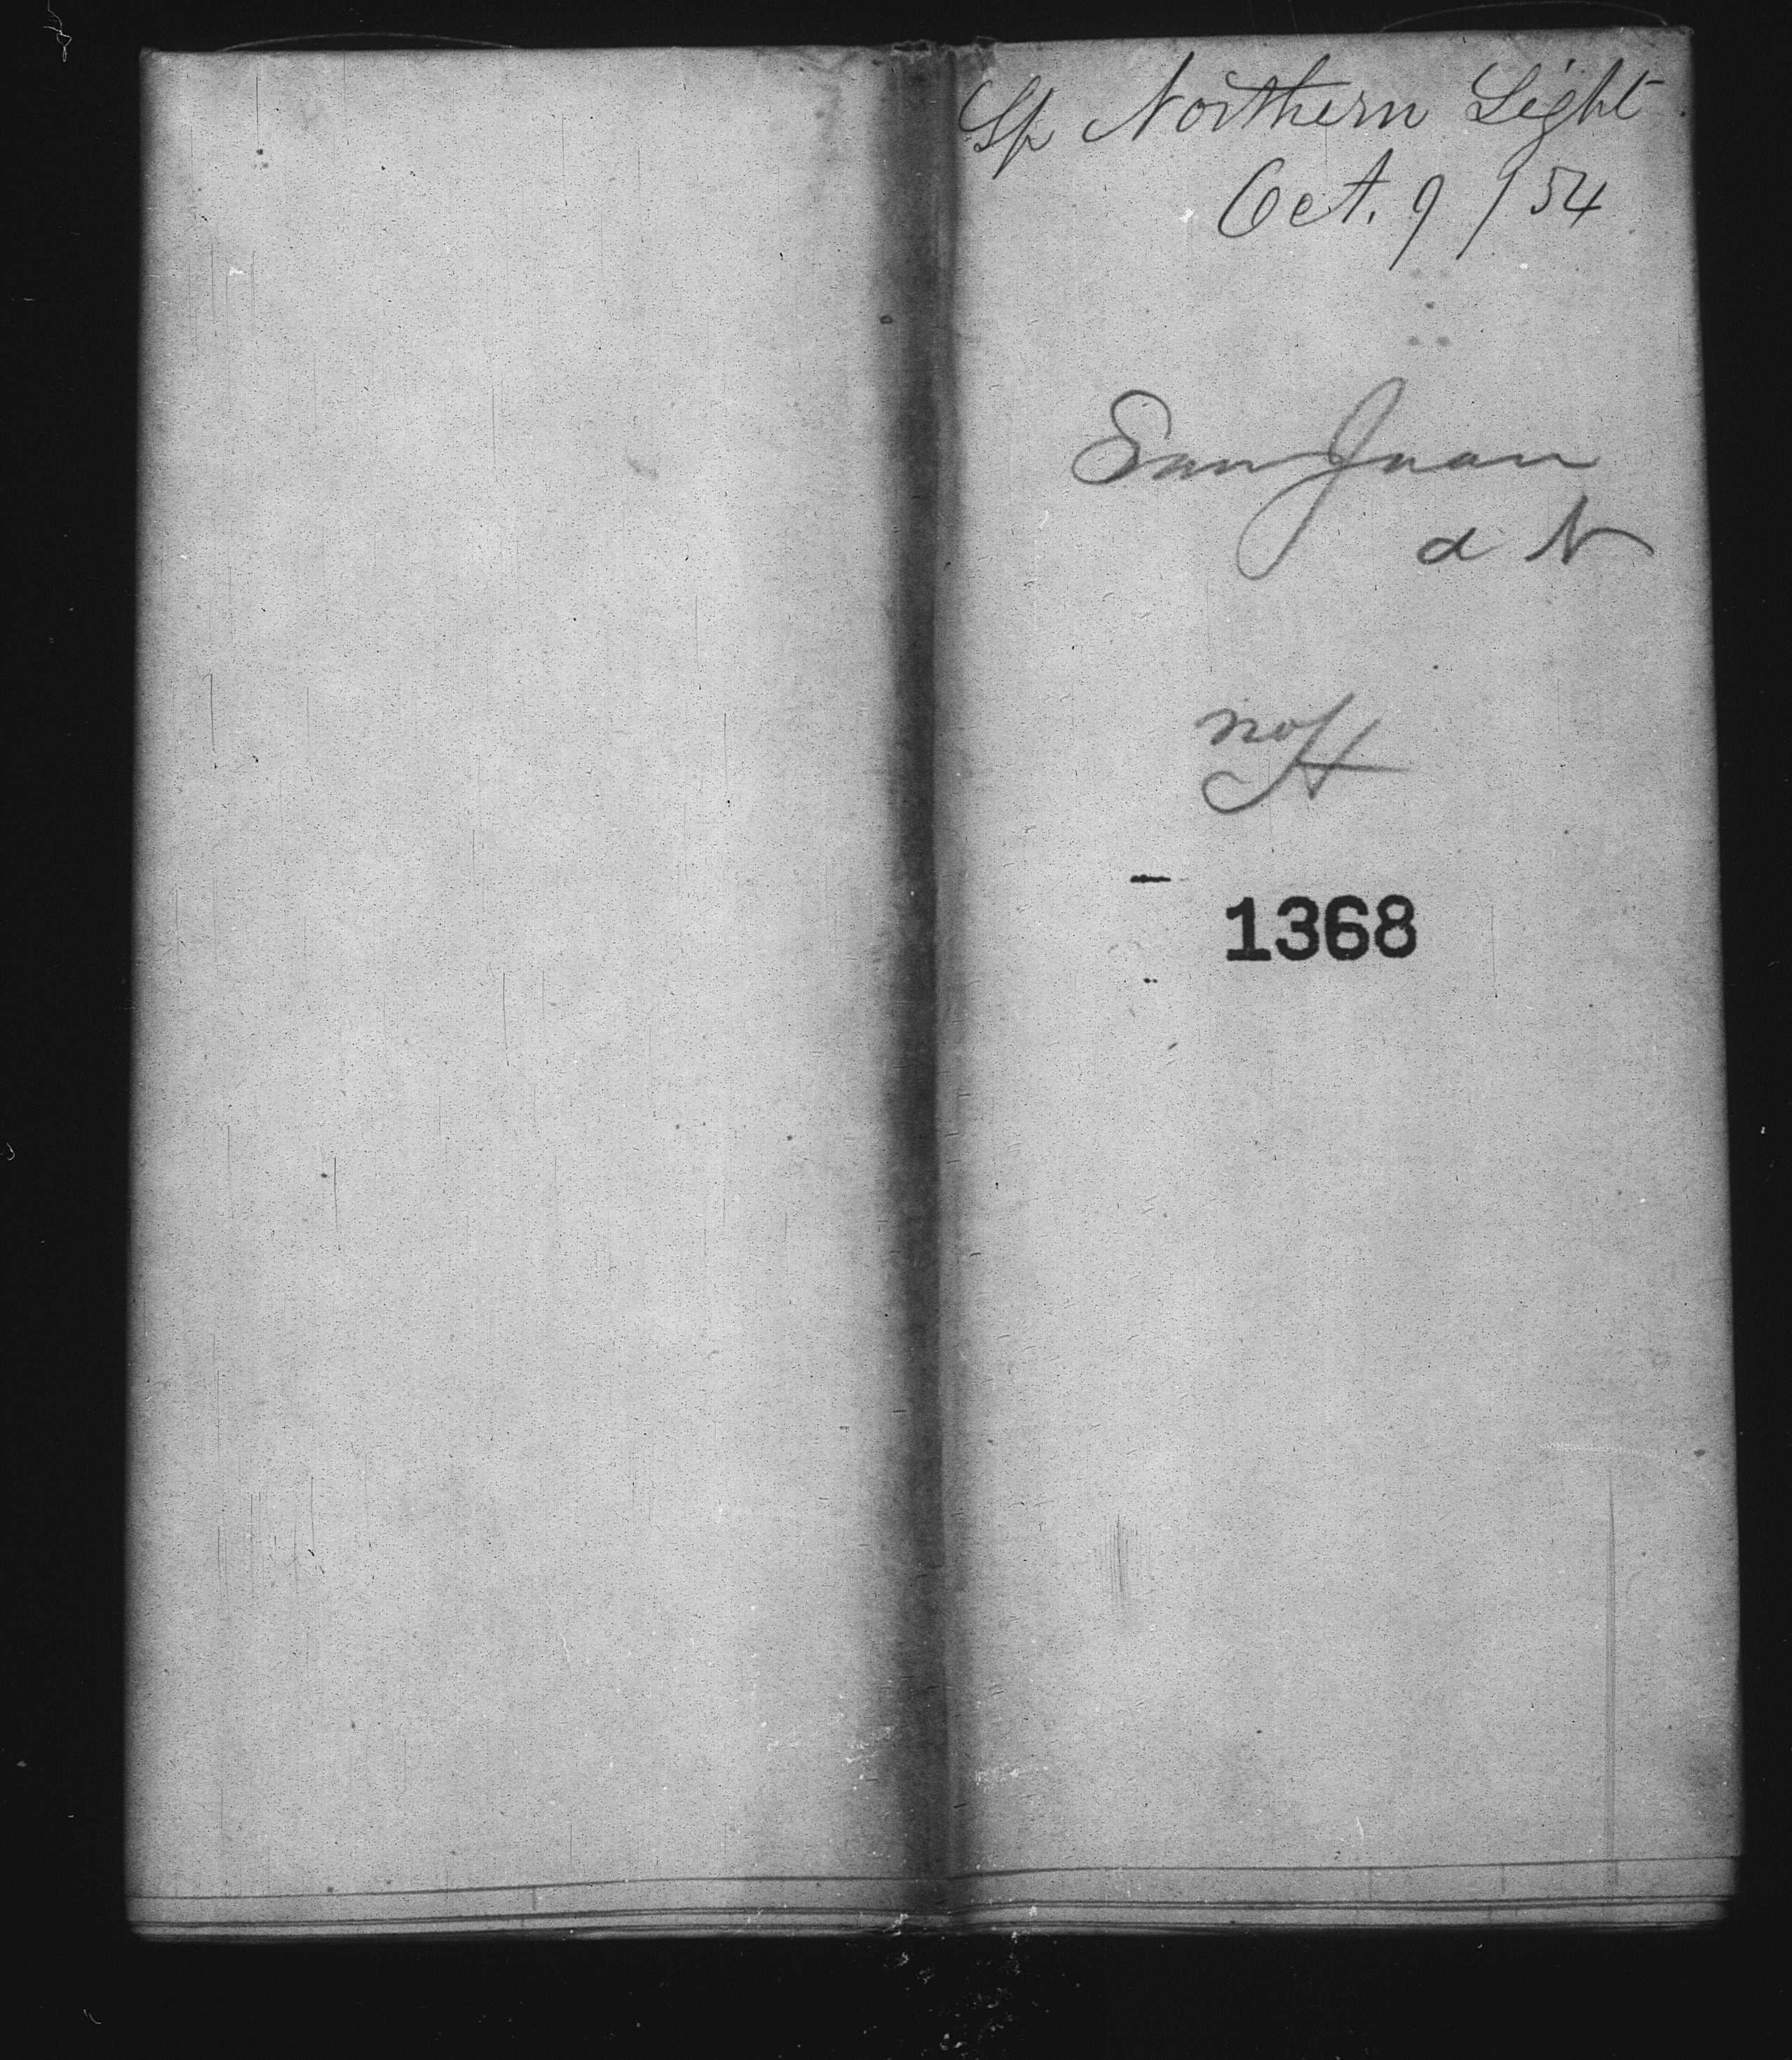 Sp Northern Light
Oct. 9 / 54
San Juan
d N
1368